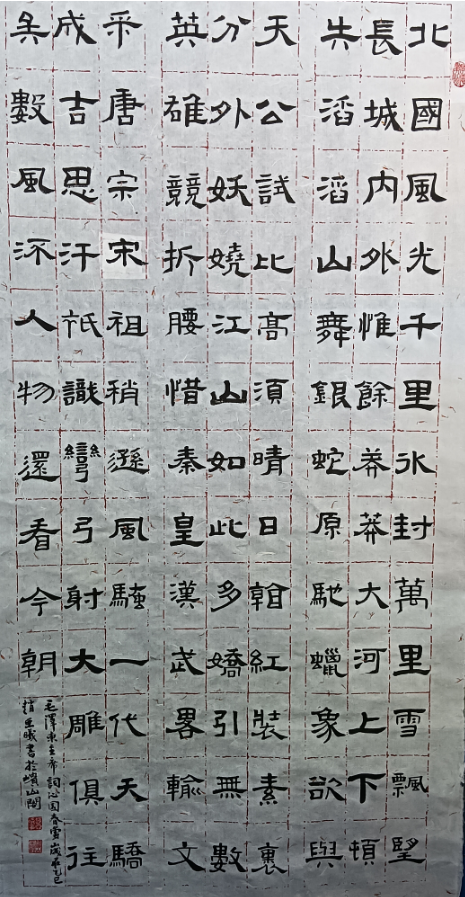 北國風光千里氷封萬里雪飄望
長城内外惟餘莽莽大河上下頓
失滔滔山舞銀蛇原馳蠟象欲與
天公試比髙須晴日看紅裝素裹
分外妖嬈江山如此多嬌引無數
英雄競折腰惜秦皇漢武畧輸文
采唐宗宋祖稍遜風騷一代天驕
成吉思汗祇識彎弓射大雕俱往
矣數風流人物還看今朝
毛澤東主席詞沁園春雪歲在乙巳
書於山閣